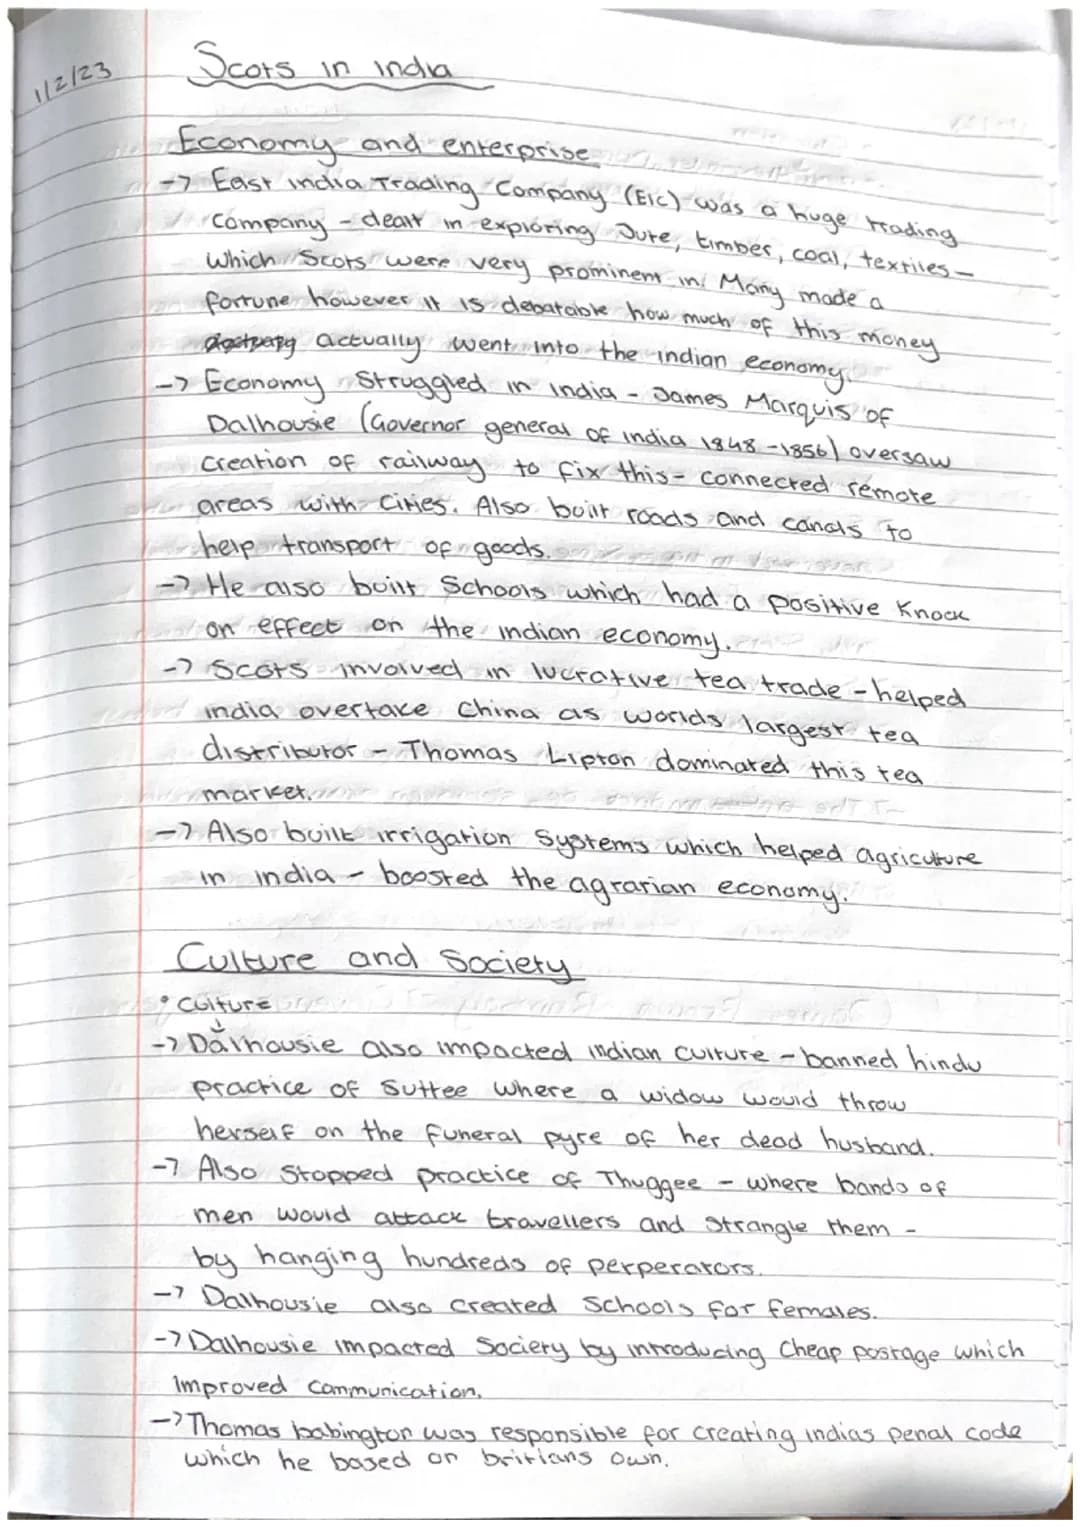 1/2/23
Scots in india
Economy and enterprise
-> East india Trading Company (EIC) was a huge trading
company - dealt in exploring Jute, timber, coal, textiles -
which Scots were very prominent in. Many made a
fortune however it is debatable how much of this money
actually went into the indian economy.
-> Economy struggled in india - James Marquis of
Dalhousie (Governor general of india 1848 - 1856) oversaw
creation of railway to fix this - connected remote
areas with cities. Also built roads and canals to
help transport of goods.
-> He also built Schools which had a positive knock
on effect on the indian economy.
-> Scots involved in lucrative tea trade - helped
india overtake China as worlds largest tea
distributor - Thomas Lipton dominated this tea
market.
-> Also built irrigation systems which helped agricuture
in india - boosted the agrarian economy.
Culture and Society
• Culture
-> Dalhousie also impacted indian culture - banned hindu
practice of Suttee where a widow would throw
herself on the funeral pyre of her dead husband.
-> Also stopped practice of Thuggee - where bands of
men would attack travellers and strangle them -
by hanging hundreds of perperators.
-> Dalhousie also created schools for females.
-> Dalhousie impacted society by introducing cheap postage which
improved communication.
-> Thomas babington was responsible for creating indias penal code
which he based on britians own.